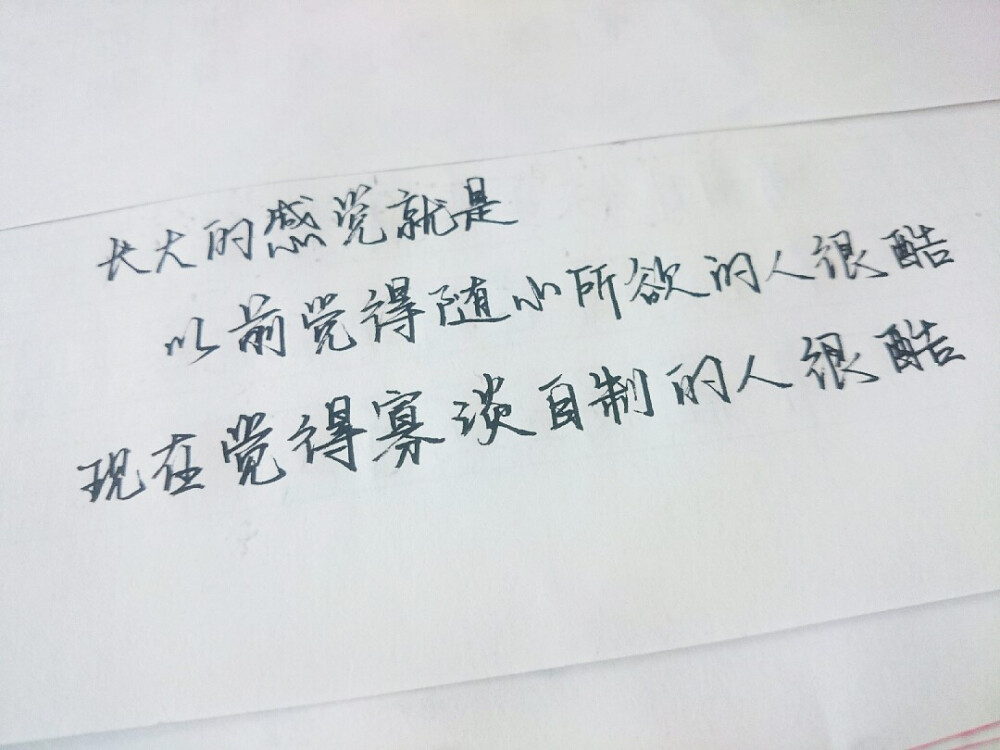 长大的感觉就是
以前觉得随心所欲的人很酷
现在觉得寡淡自制的人很酷